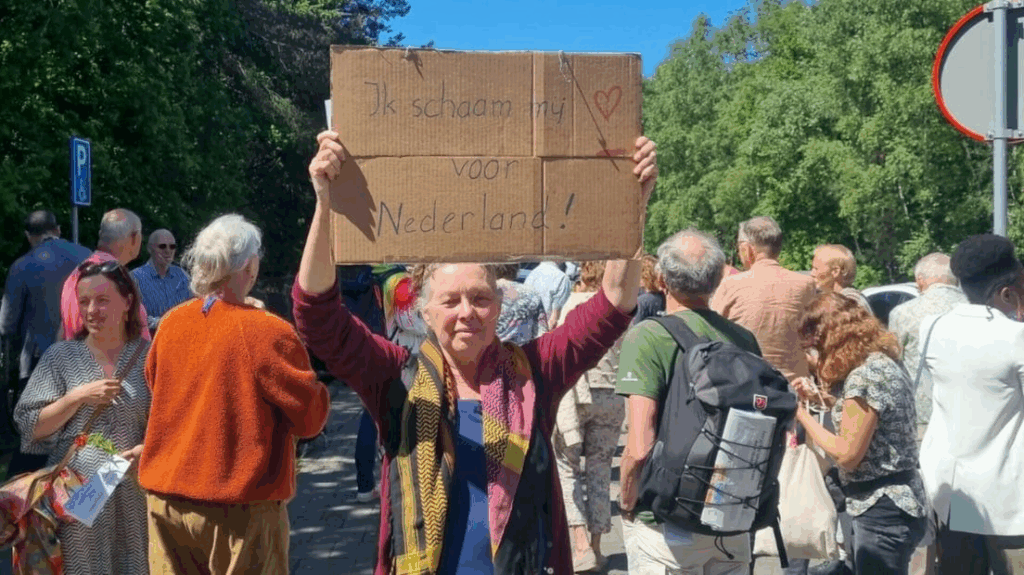 Ik schaam mij
voor
Nederland!
P